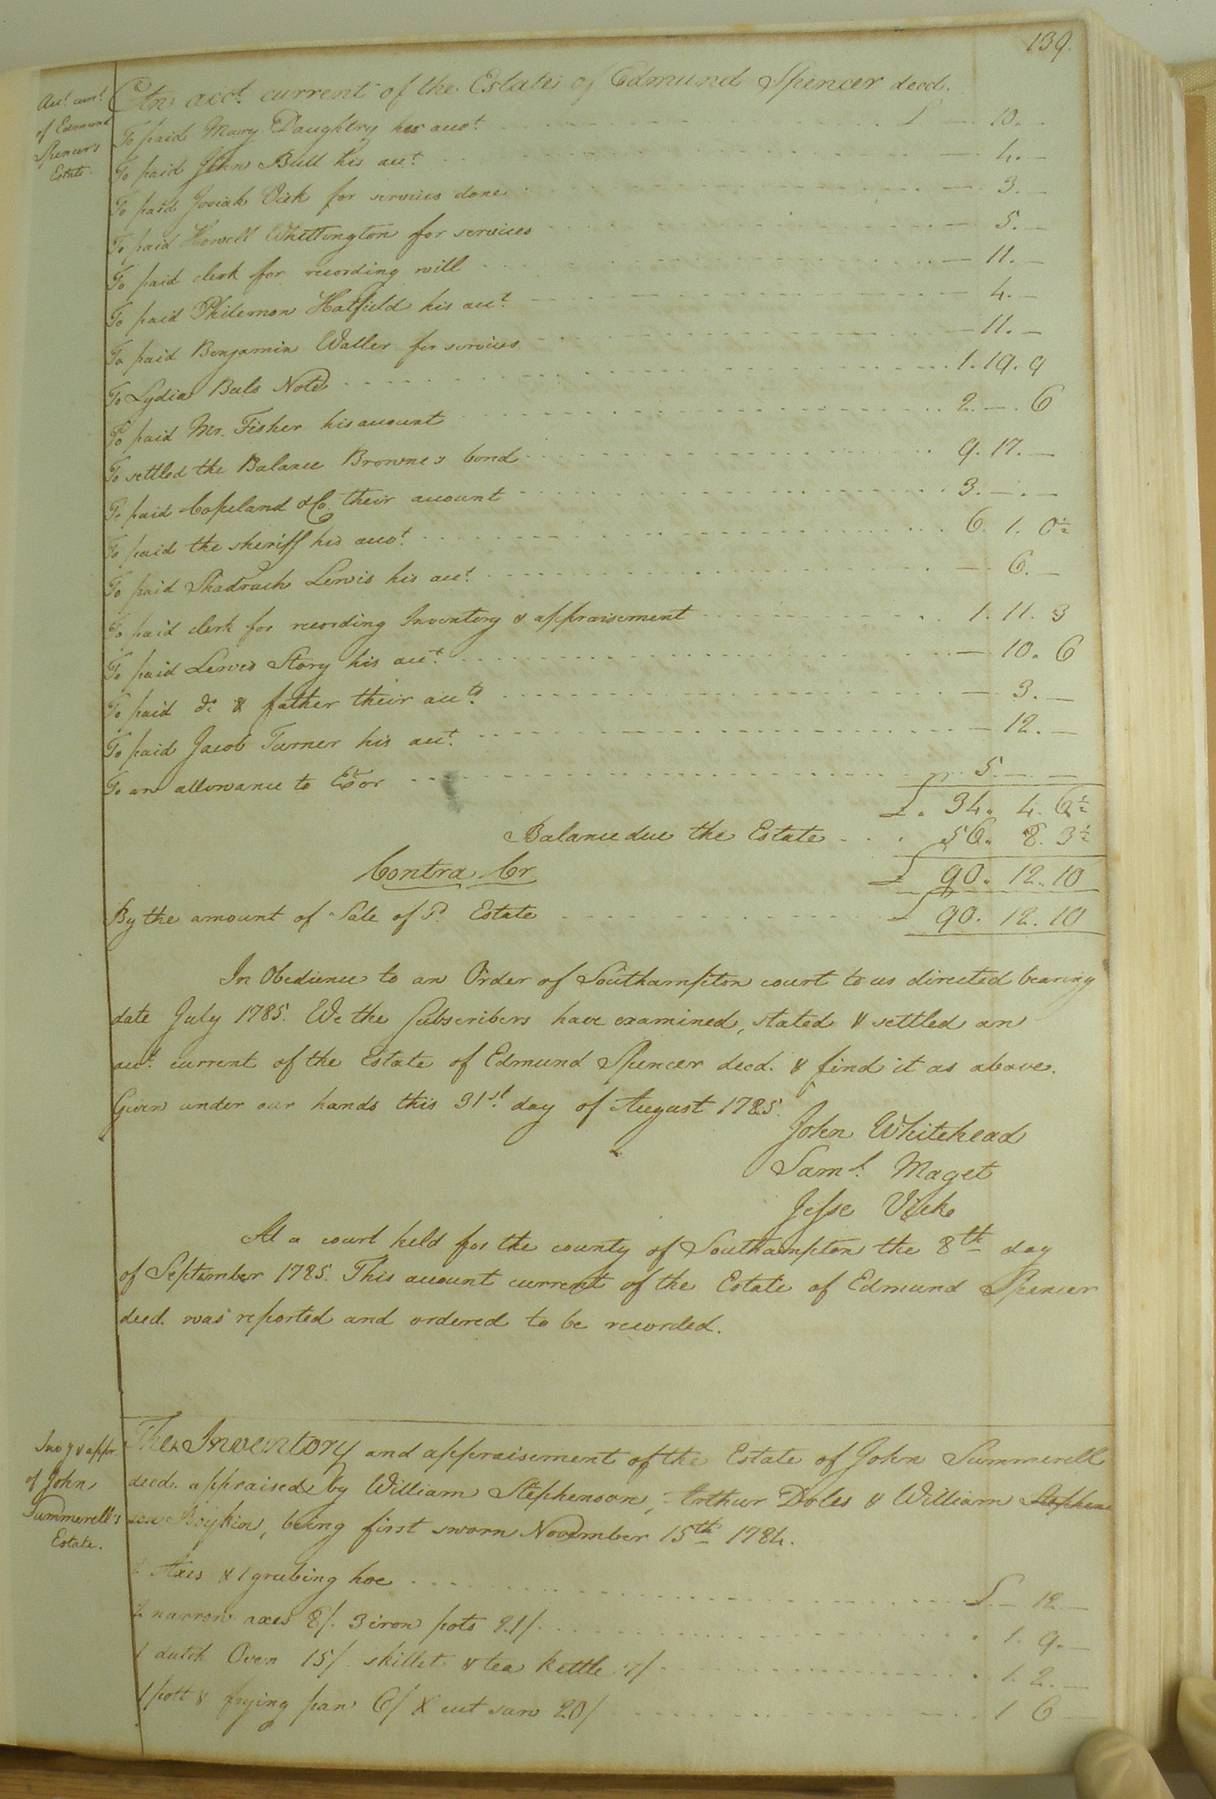 139.
Acct. curr.t of Edmund Spencer's Estate.
An acct. current of the Estate of Edmund Spencer decd.
To paid Mary Daughtry her acct. £ — 10. —
To paid John Bull his acct. — 4. —
To paid Josiah Vick for services done — 3. —
To paid Howell Whittington for services — 5. —
To paid clerk for recording will — 11. —
To paid Philemon Hatfield his acct. — 4. —
To paid Benjamin Waller for services — 11. —
To Lydia Buls Note 1. 19. 9
To paid Mr. Fisher his account 2. — . 6
To settled the Balance Browne's bond 9. 17. —
To paid Copeland & Co. their account 3. — . —
To paid the sheriff his acct. 6. 1. 0½
To paid Shadrach Lewis his acct. — 6. —
To paid clerk for recording Inventory & appraisement 1. 11. 3
To paid Lewis Story his acct. — 10. 6
To paid do & father their accts. — 3. —
To paid Jacob Turner his acct. — 12. —
To an allowance to Exor 5. — . —
£. 34. 4. 6½
Balance due the Estate 56. 8. 3½
Contra Cr £ 90. 12. 10
By the amount of Sale of sd. Estate £ 90. 12. 10
In Obedience to an Order of Southampton court to us directed bearing
date July 1785. We the Subscribers have examined, stated & settled an
acct. current of the Estate of Edmund Spencer decd. & find it as above.
Given under our hands this 31st. day of August 1785.
John Whitehead
Saml. Maget
Jesse Vick
At a court held for the county of Southampton the 8th day
of September 1785. This account current of the Estate of Edmund Spencer
decd. was reported and ordered to be recorded.
Invy & appr of John Summerell's Estate.
The Inventory and appraisement of the Estate of John Summerell
decd. appraised by William Stephenson, Arthur Doles & William Stephen
son Boykin, being first sworn November 15th 1784.
Axes & 1 grubing hoe £ — 12 —
narrow axes 8/. 3 iron pots 21/. 1. 9. —
1 dutch Oven 15/. skillet & tea kettle 7/ 1. 2. —
1 pott & frying pan 6/ X cut saw 20/ 1 6 —